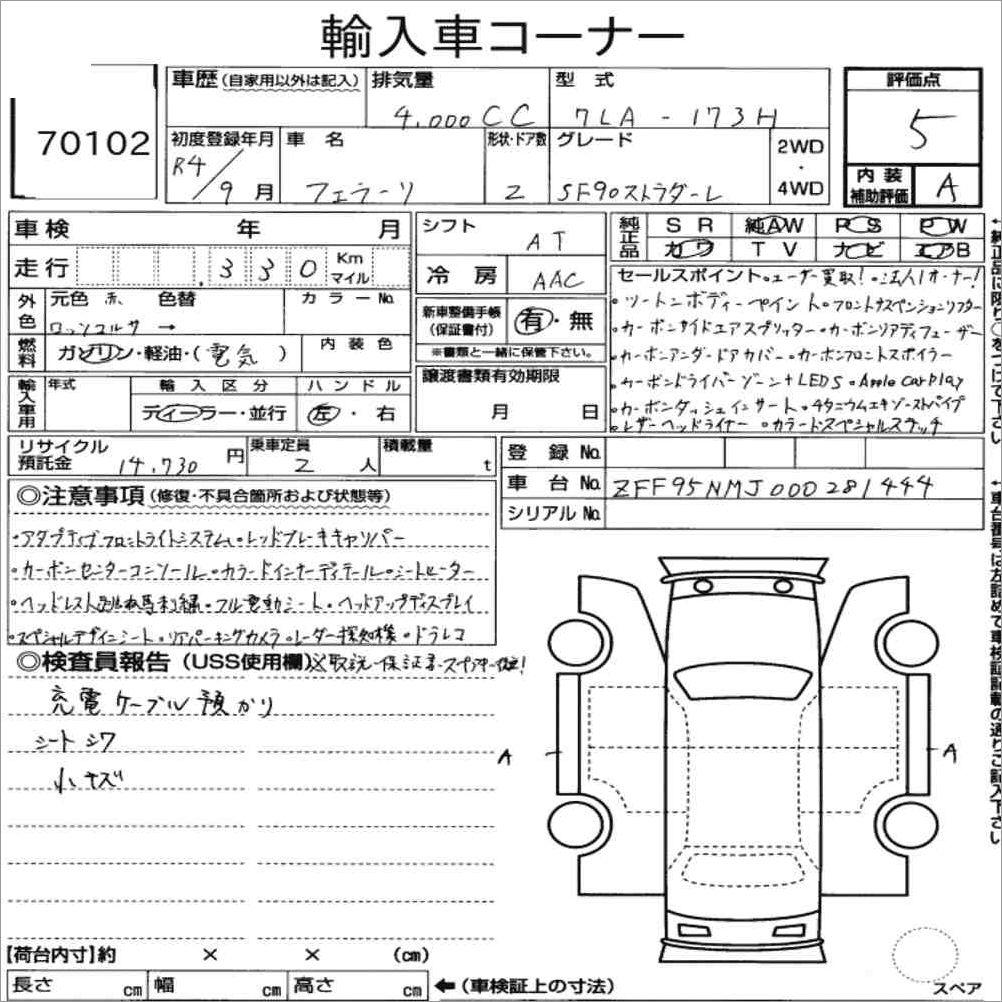 輸入車コーナー
70102
車歴(自家用以外は記入)
排気量
4.000CC
型 式
7LA - 173H
評価点
5
初度登録年月
R4/9月
車 名
フェラーリ
形状・ドア数
2
グレード
SF90ストラダーレ
2WD
・
4WD
内 装
補助評価
A
車検 年 月
走行 330 Km
マイル
シフト
AT
冷 房
AAC
純正品
SR 純AW PS PW
カワ TV ナビ エアB
外色
元色 赤
色替
カラーNo.
ロッソコルサ →
燃料
ガソリン・軽油・(電気)
内 装 色
新車整備手帳
(保証書付)
有・無
※書類と一緒に保管下さい。
輸入車用
年式
輸 入 区 分
ディーラー・並行
ハ ン ド ル
左・右
譲渡書類有効期限
月 日
セールスポイント・ユーザー買取!・法人1オーナー!
・ツートンボディーペイント・フロントサスペンションリフター
・カーボンサイドエアスプリッター・カーボンリアディフューザー
・カーボンアンダードアカバー・カーボンフロントスポイラー
・カーボンドライバーゾーン+LEDS・Apple CarPlay
・カーボンダッシュインサート・チタニウムエキゾーストパイプ
・レザーヘッドライナー・カラードスペシャルステッチ
リサイクル
預託金 14,730円
乗車定員
2人
積載量
t
登 録 No.
車 台 No. ZFF95NMJ000281444
シリアル No.
◎注意事項(修復・不具合箇所および状態等)
・アダプティブフロントライトシステム・レッドブレーキキャリパー
・カーボンセンターコンソール・カラードインナーディテール・シートヒーター
・ヘッドレスト跳ね馬刺繍・フル電動シート・ヘッドアップディスプレイ
・スペシャルデザインシート・リアパーキングカメラ・レーダー探知機・ドラレコ
◎検査員報告(USS使用欄)※取説・保証書・スペアキー
充電ケーブル預かり
シートシワ
小キズ
A
A
【荷台内寸】約 × × (cm)
長さ cm 幅 cm 高さ cm ←(車検証上の寸法)
スペア
←純正品に限り○をつけて下さい
←車台番号は左詰めで車検証記載の通りご記入下さい